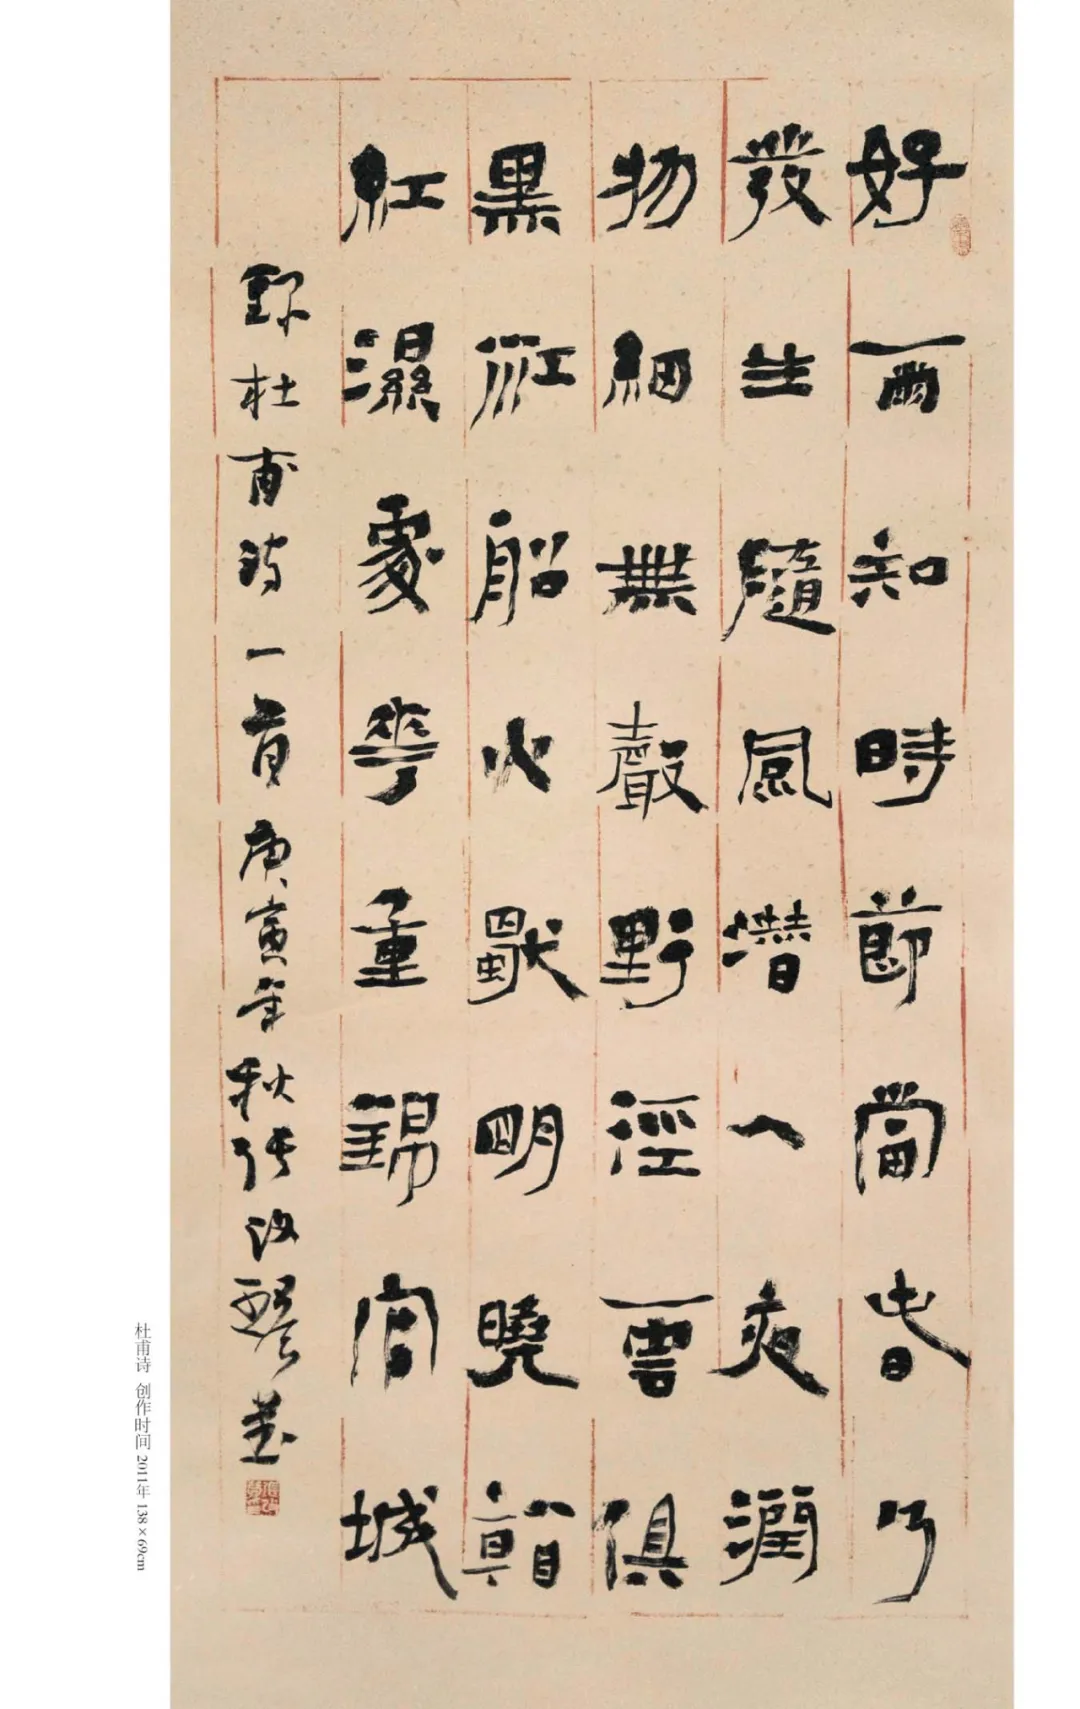 好雨知時節當春乃
發生隨風潛入夜潤
物細無聲野徑雲俱
黑江船火獨明曉看
紅濕處華重錦官城
録杜甫詩一首庚寅年秋張改琴書
杜甫诗 创作时间 2011年 138×69cm